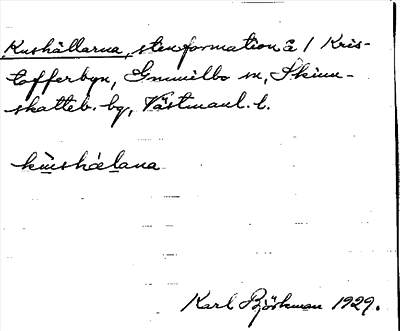 Kushällarna, stenformation å 1 Kris-
tofferbyn, Gunnilbo sn, Skinn-
skatteb. bg, Västmanl. l.
kùshä̀lana
Karl Björkman 1929.